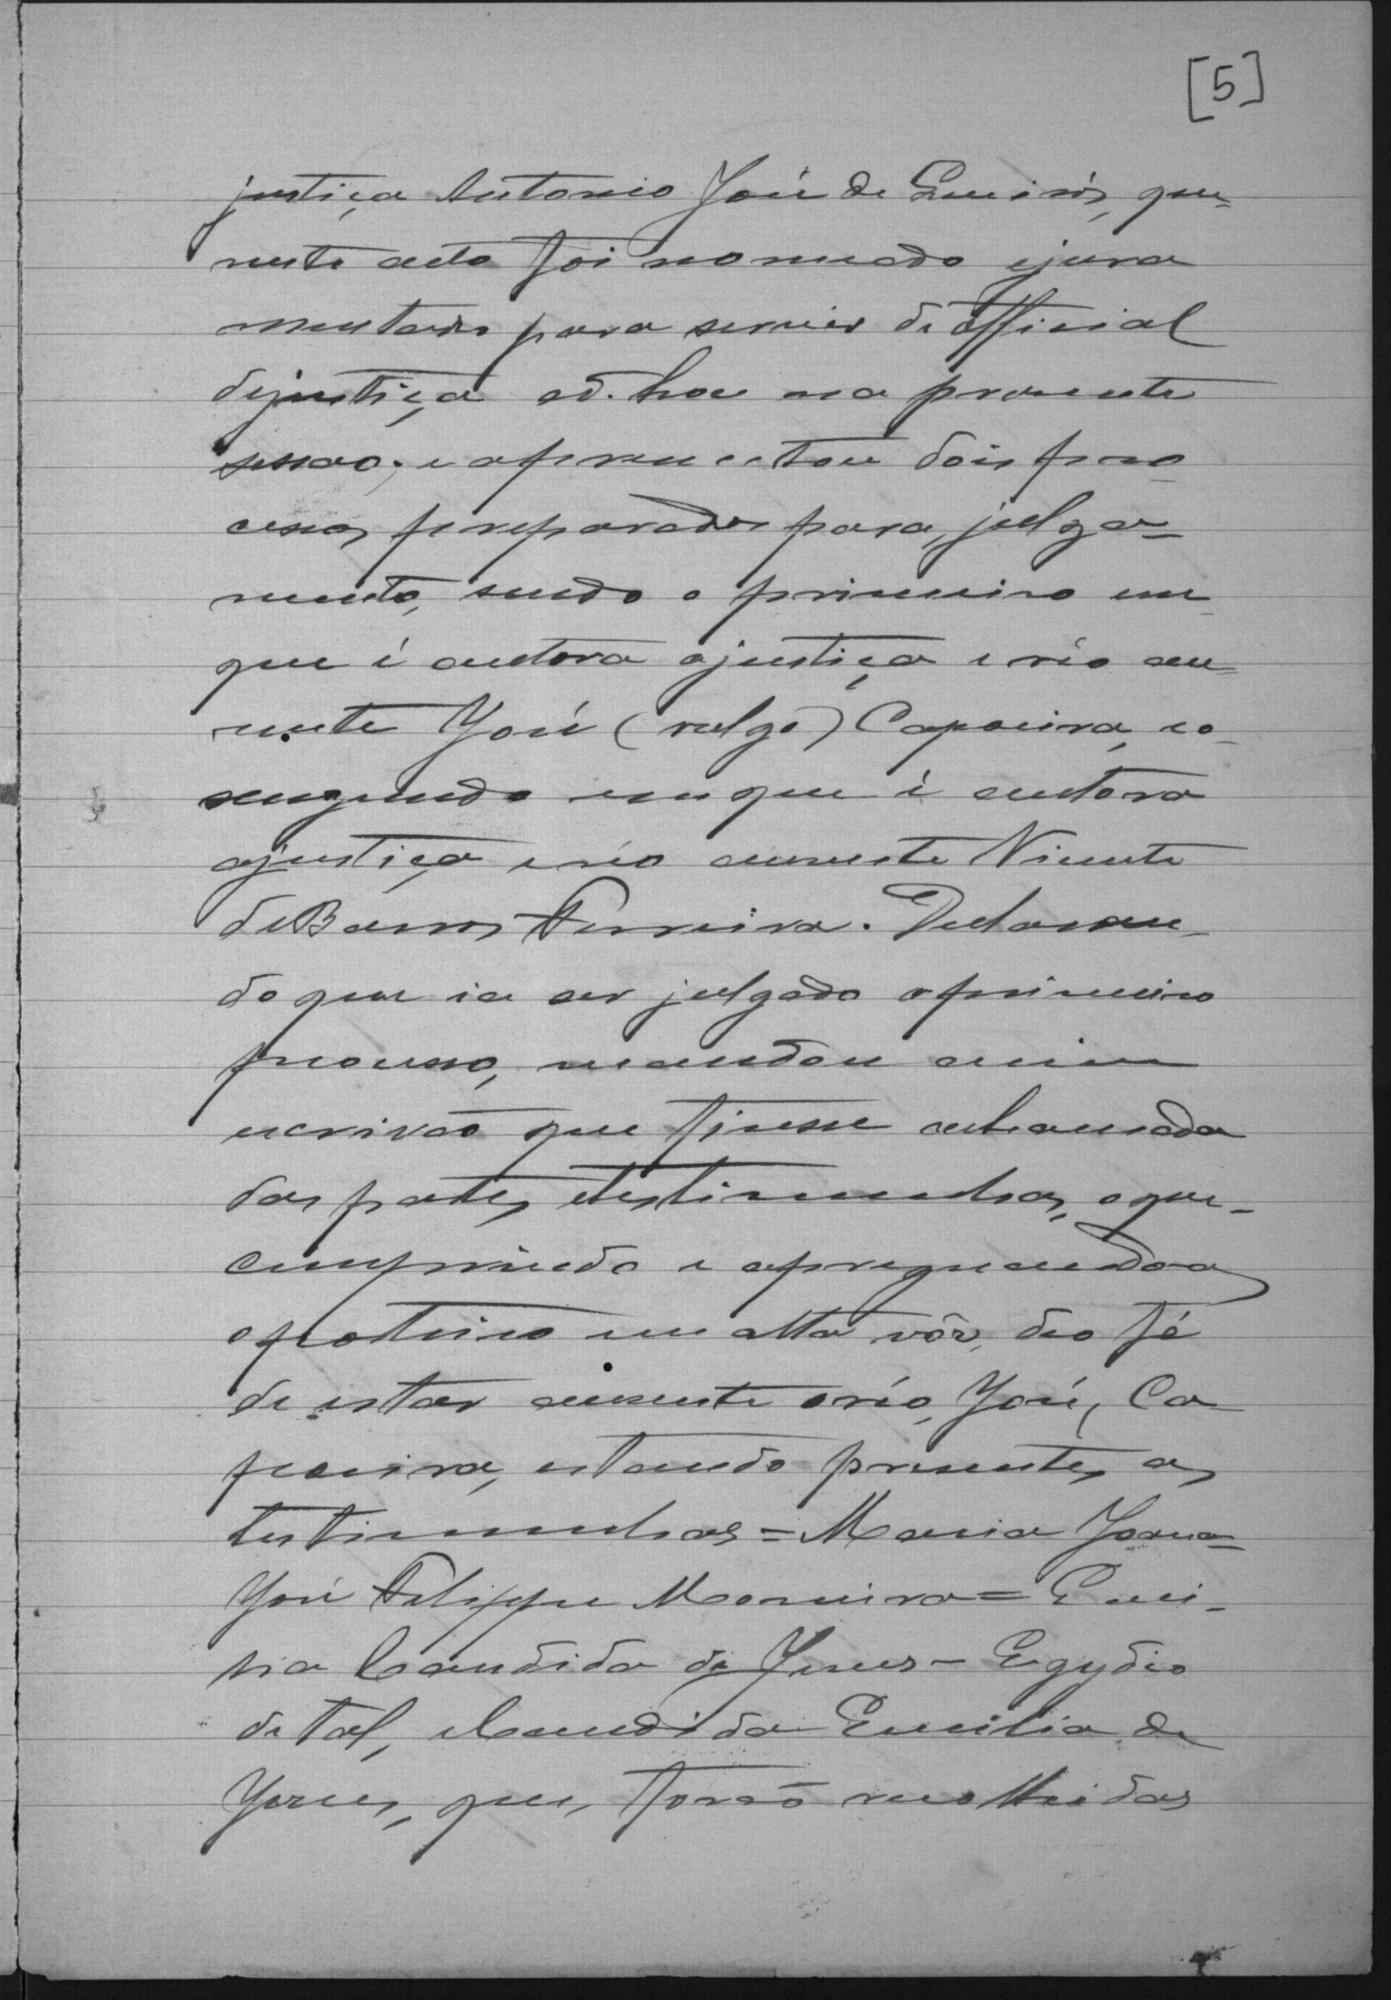 [5]
justiça Antonio José de Queirós, que
neste acto foi nomeado ejura
mentado para servir de official
dejustiça ad. hoc na presente
sessao; e apresentou dois pro
cessos preparados para julga-
mento, sendo o primeiro em
que é autora ajustiça e réo au-
sente José (vulgo) Capoeira, eo-
segundo emque é autora
ajustiça eréo ausente Vicente
deBarros Ferreira. Declaran-
do que ia ser julgado oprimeiro
processo, mandou amim
escrivão que fisesse achamada
das partes, etestimunhas, oque-
cumprindo e apregoando as
oporteiro em alta vôz, deo fé
de estar ausente oréo, José, Ca
poeira, estando presentes as
testimunhas = Maria Joana=
José Felippe Moreira= Emi-
ria Candida de Jesus- Egydio
de tal, eCandida Emilia de
Jesus, que, forão recolhidas